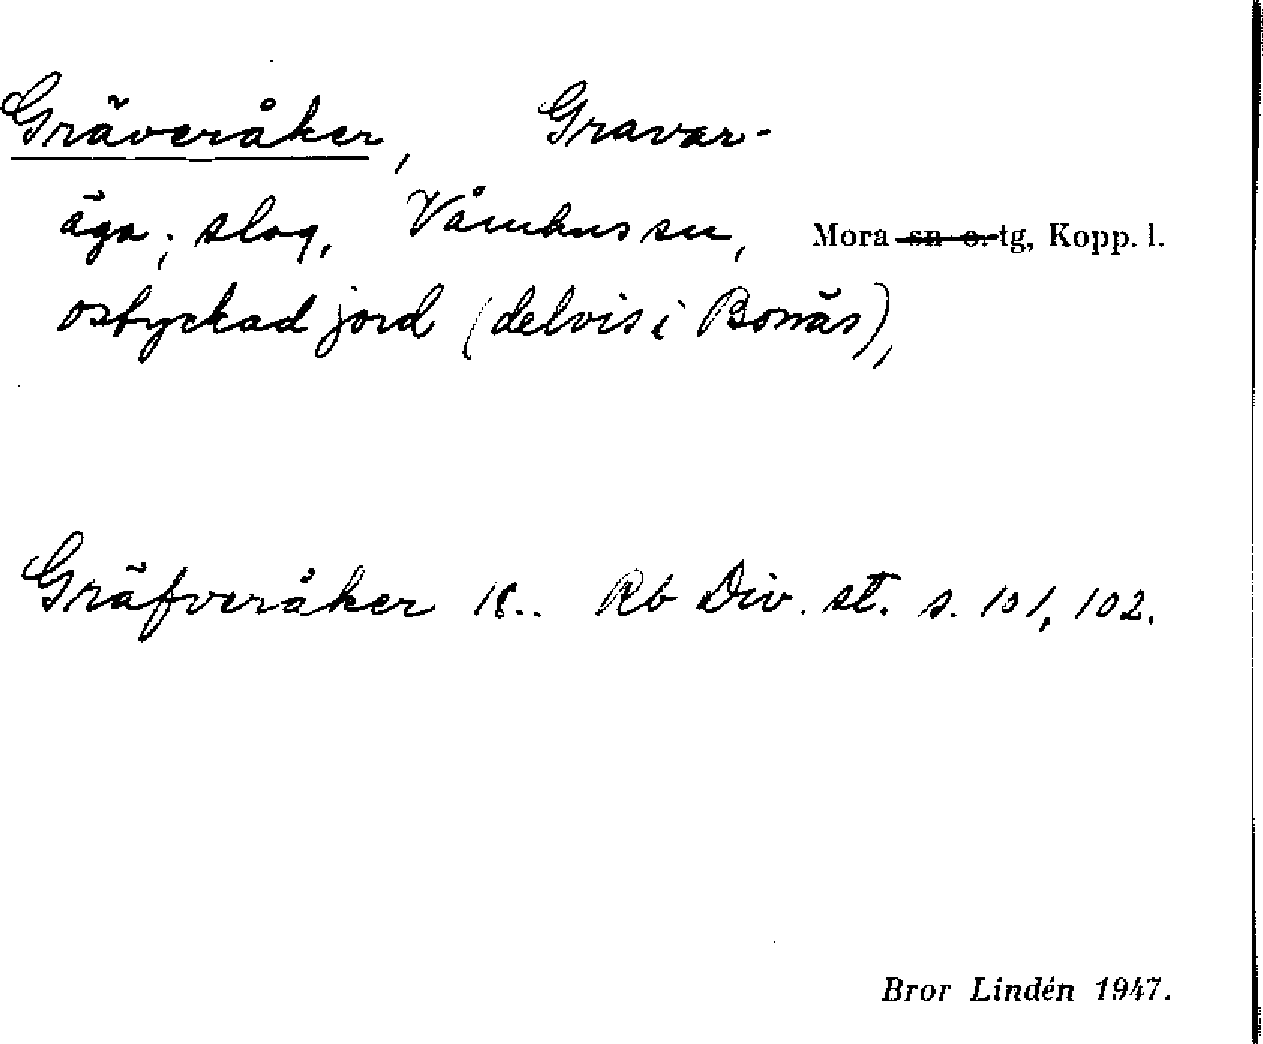 Gräveråker, Gravar-
äga; slog, Våmhus sn, Mora sn o. tg, Kopp. l.
ostyckad jord (delvis i Bonäs),
Gräfveråker 18.. Rb Div. st. s. 101, 102.
Bror Lindén 1947.